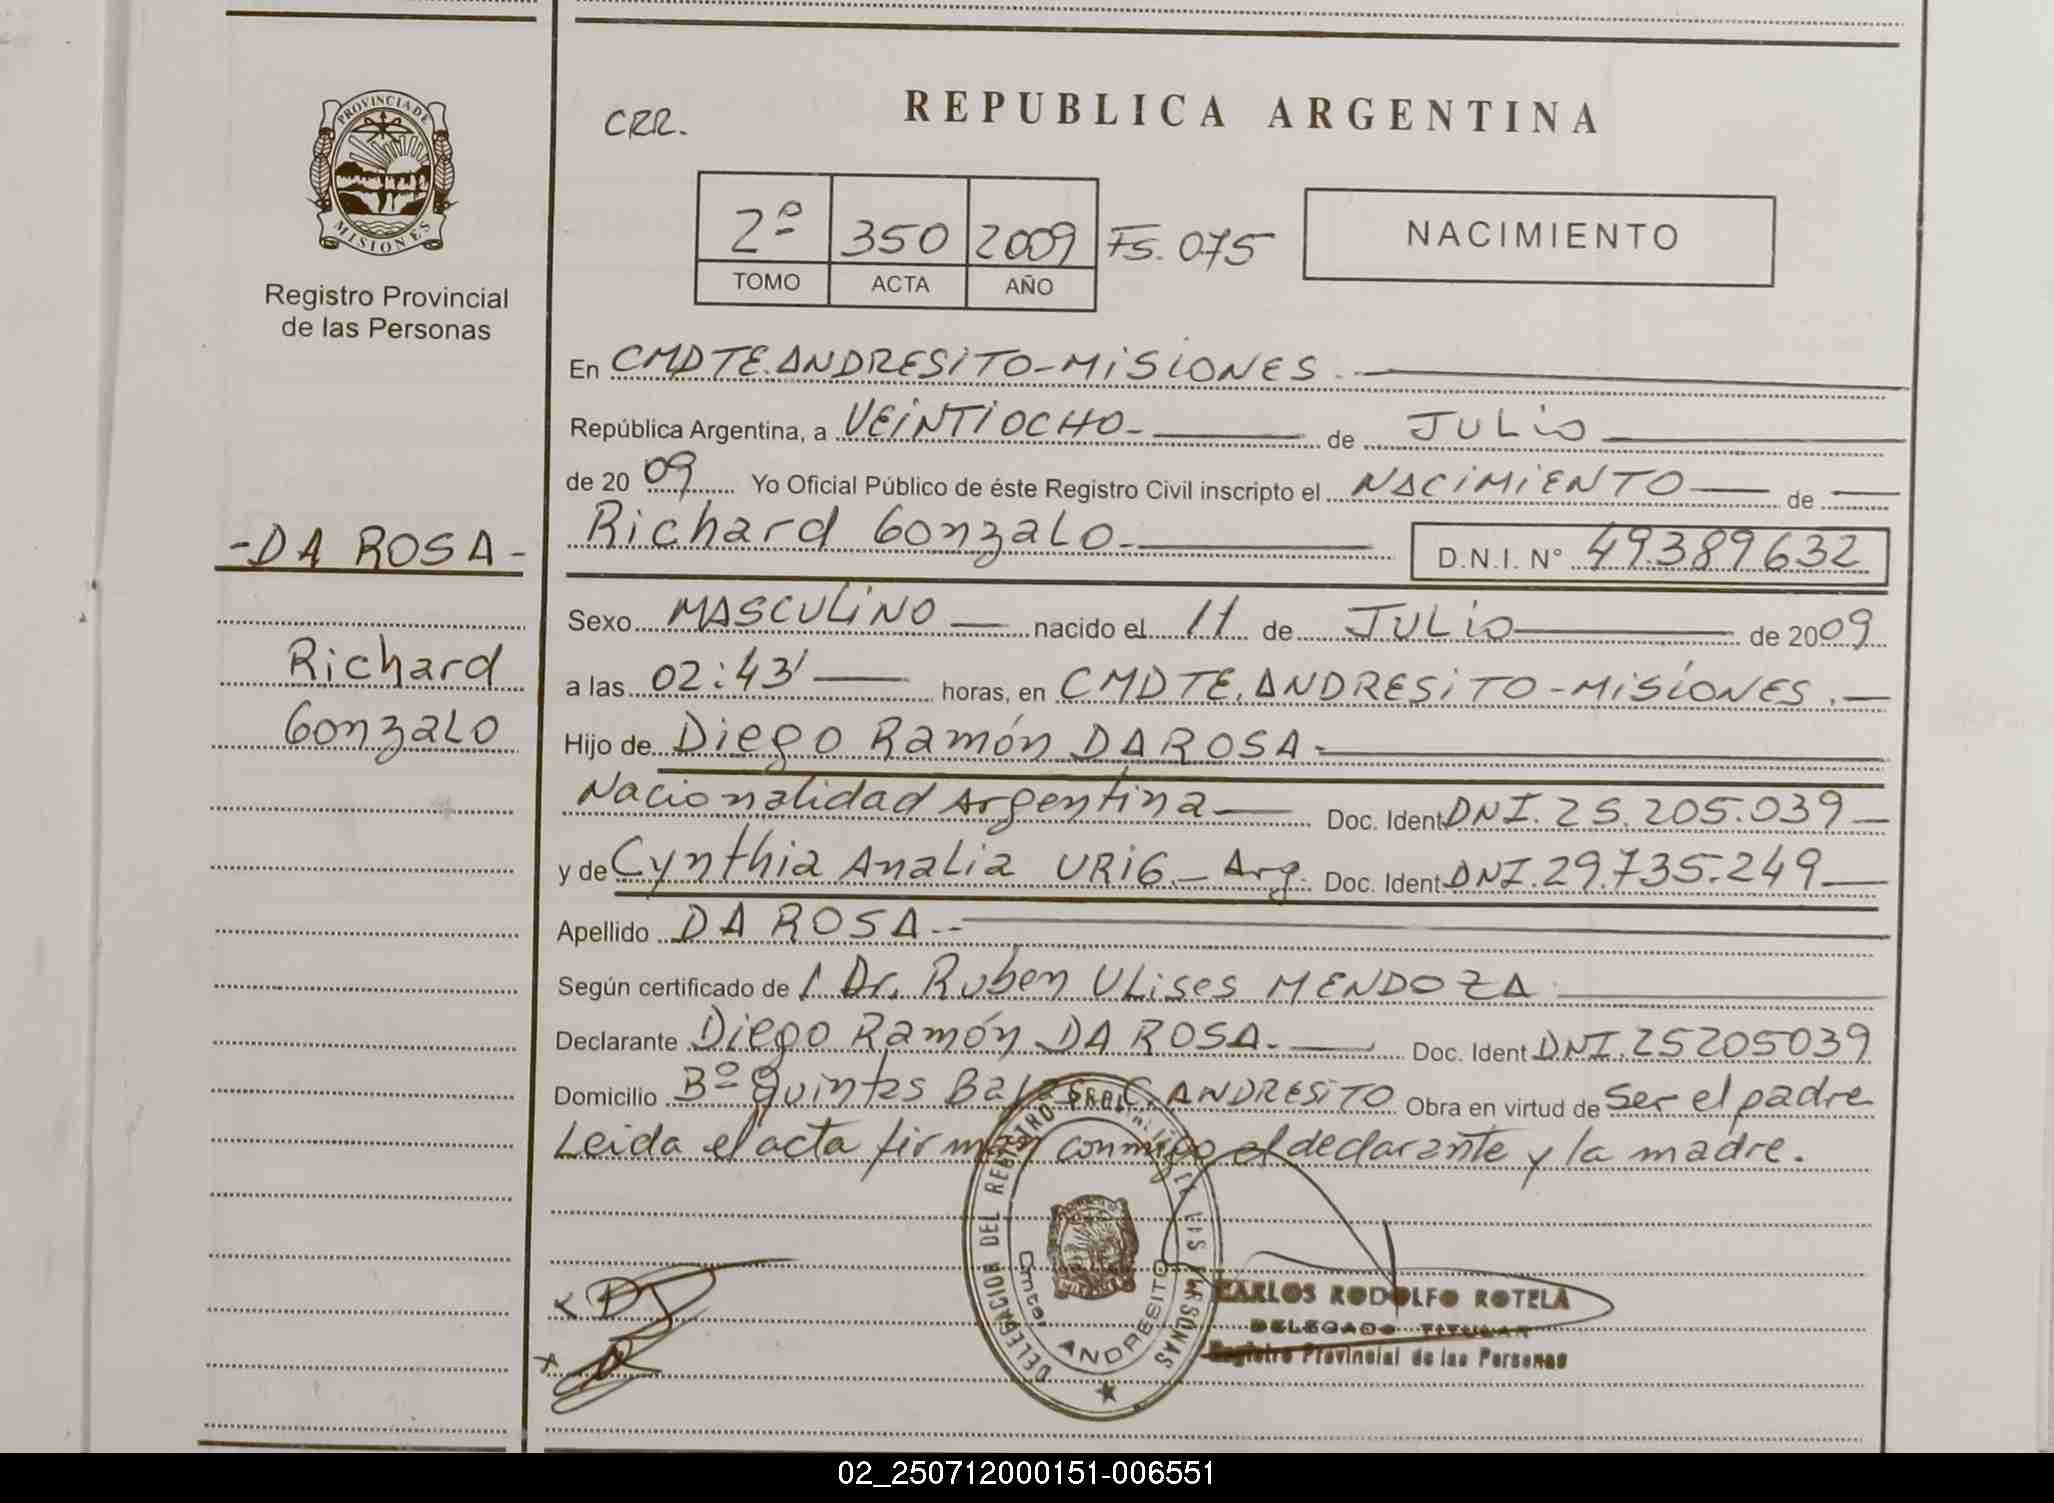 PROVINCIA DE
MISIONES
Registro Provincial
de las Personas
-DA ROSA-
Richard
Gonzalo
CRR.
REPUBLICA ARGENTINA
2º 350 2009 Fs. 075
TOMO ACTA AÑO
NACIMIENTO
En CMDTE. ANDRESITO-MISIONES.
República Argentina, a VEINTIOCHO- de JULIO
de 2009 Yo Oficial Público de éste Registro Civil inscripto el NACIMIENTO de
Richard Gonzalo- D.N.I. N° 49389632
Sexo MASCULINO nacido el 11 de JULIO de 2009
a las 02:43' horas, en CMDTE. ANDRESITO-MISIONES.
Hijo de Diego Ramón DA ROSA-
Nacionalidad Argentina Doc. Ident DNI. 25.205.039
y de Cynthia Analia URIG.- Arg. Doc. Ident DNI. 29.735.249
Apellido DA ROSA.-
Según certificado de Dr. Ruben Ulises MENDOZA
Declarante Diego Ramón DA ROSA. Doc. Ident DNI. 25205039
Domicilio Bº Quintas C. ANDRESITO Obra en virtud de ser el padre
Leida el acta firman conmigo el declarante y la madre.
DELEGACION DEL REGISTRO
Cmte. ANDRESITO
CARLOS RODOLFO ROTELA
DELEGADO TITULAR
Registro Provincial de las Personas
02_250712000151-006551